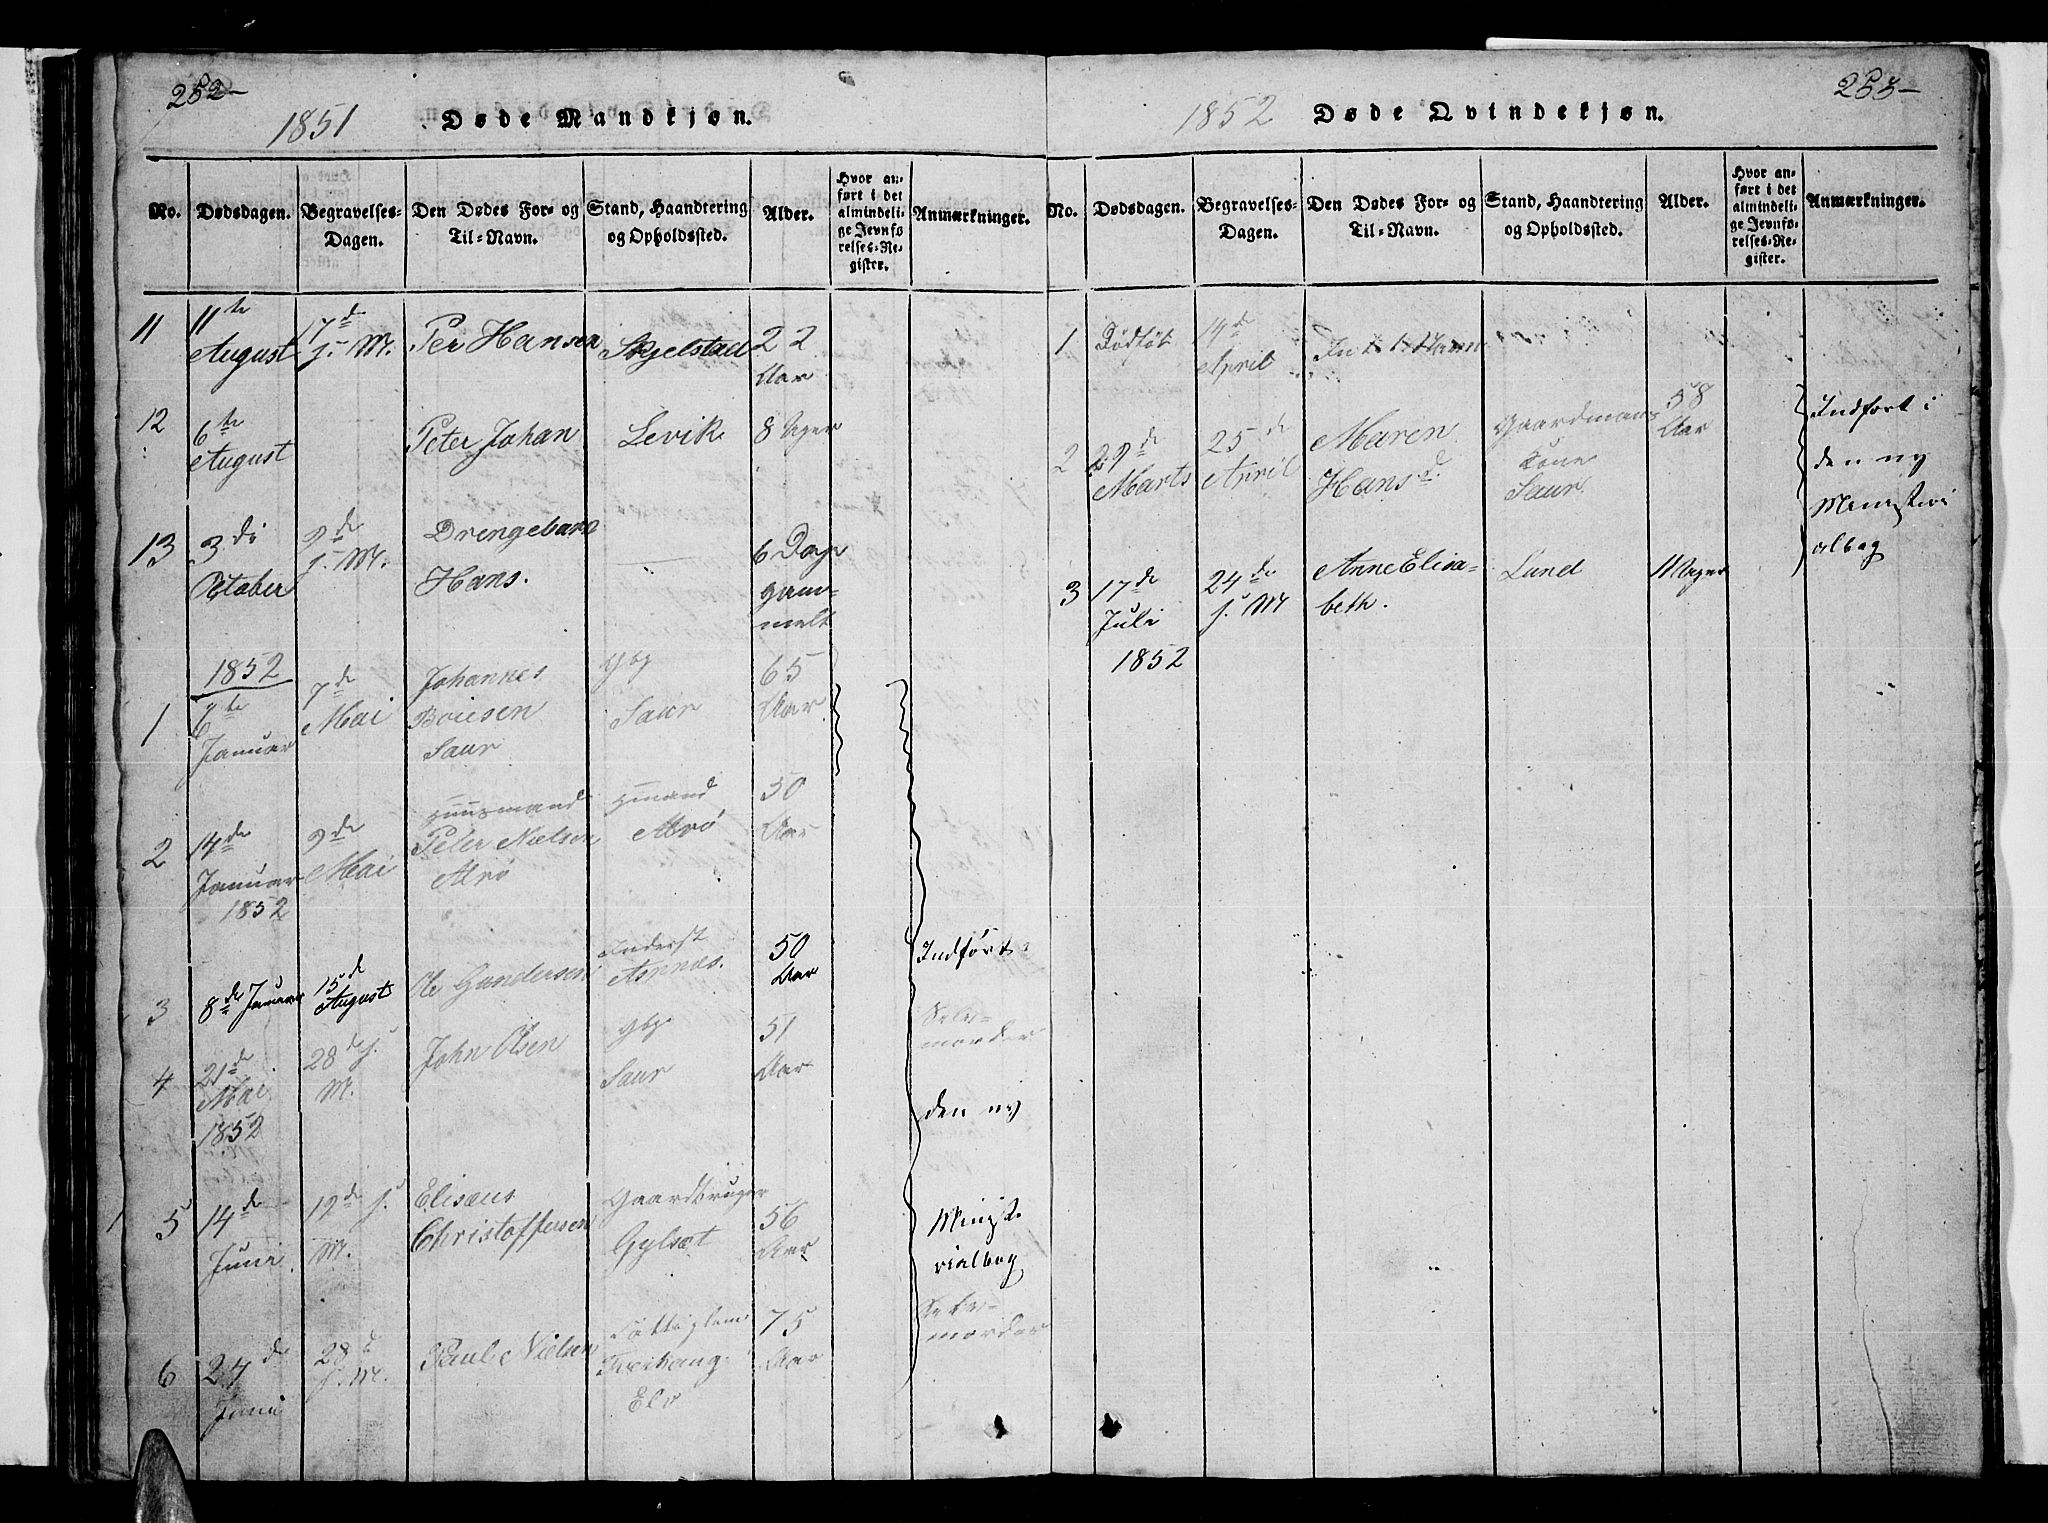 252-
1851
Døde Mandkjøn.
No.
Dødsdagen.
Begravelses-
Dagen.
Den Dødes For- og
Til-Navn.
Stand, Haandtering
og Opholdssted.
Alder.
Hvor an-
ført i det
almindeli-
ge Jevnfø-
relses-Re-
gister.
Anmærkninger.
11
11te
August
17de
s. M.
Per Hansen
Skjelstad
22
Aar
12
6te
August
Peter Johan
Levik
8 Uger
13
3di
October
9de
s. M.
Drengebarn
Hans.
6 Dage
gam-
melt
1852
1
6te
Januar
7de
Mai
Johannes
Boiesen
Saur
Gbg
Saur
65
Aar
2
14de
Januar
1852
9de
Mai
Huusmand
Peter Nielsen
Arø
Hmand
Arø
50
Aar
3
8de Januar
15de
August
Ole Gundersen
Inderst
Aspnæs.
50
Aar
Indført i
4
21de
Mai
1852
28de s.
M.
John Olsen
Gbg.
Saur
51
Aar
den ny
5
14de
Juni
19de s.
M.
Elisæus
Christoffersen
Gaardbruger
Gylsæt
56
Aar
Ministe
rialbog
6
24de
Juni
28de
s. M.
Paul Nielsen
Elv
75
Aar
253-
1852
Døde Qvindekjøn.
No.
Dødsdagen.
Begravelses-
Dagen.
Den Dødes For- og
Til-Navn.
Stand, Haandtering
og Opholdssted.
Alder.
Hvor an-
ført i det
almindeli-
ge Jevnfø-
relses-Re-
gister.
Anmærkninger.
1
Dødfød
14de
April
2
29de
Marts
25de
April
Maren
Hansd.
Gaardmans
Kone
Saur
58
Aar
Indført i
den ny
Ministeri
albog
3
17de
Juli
1852
24de
s. M
Anne Elisa-
beth.
Lund
11 Uger